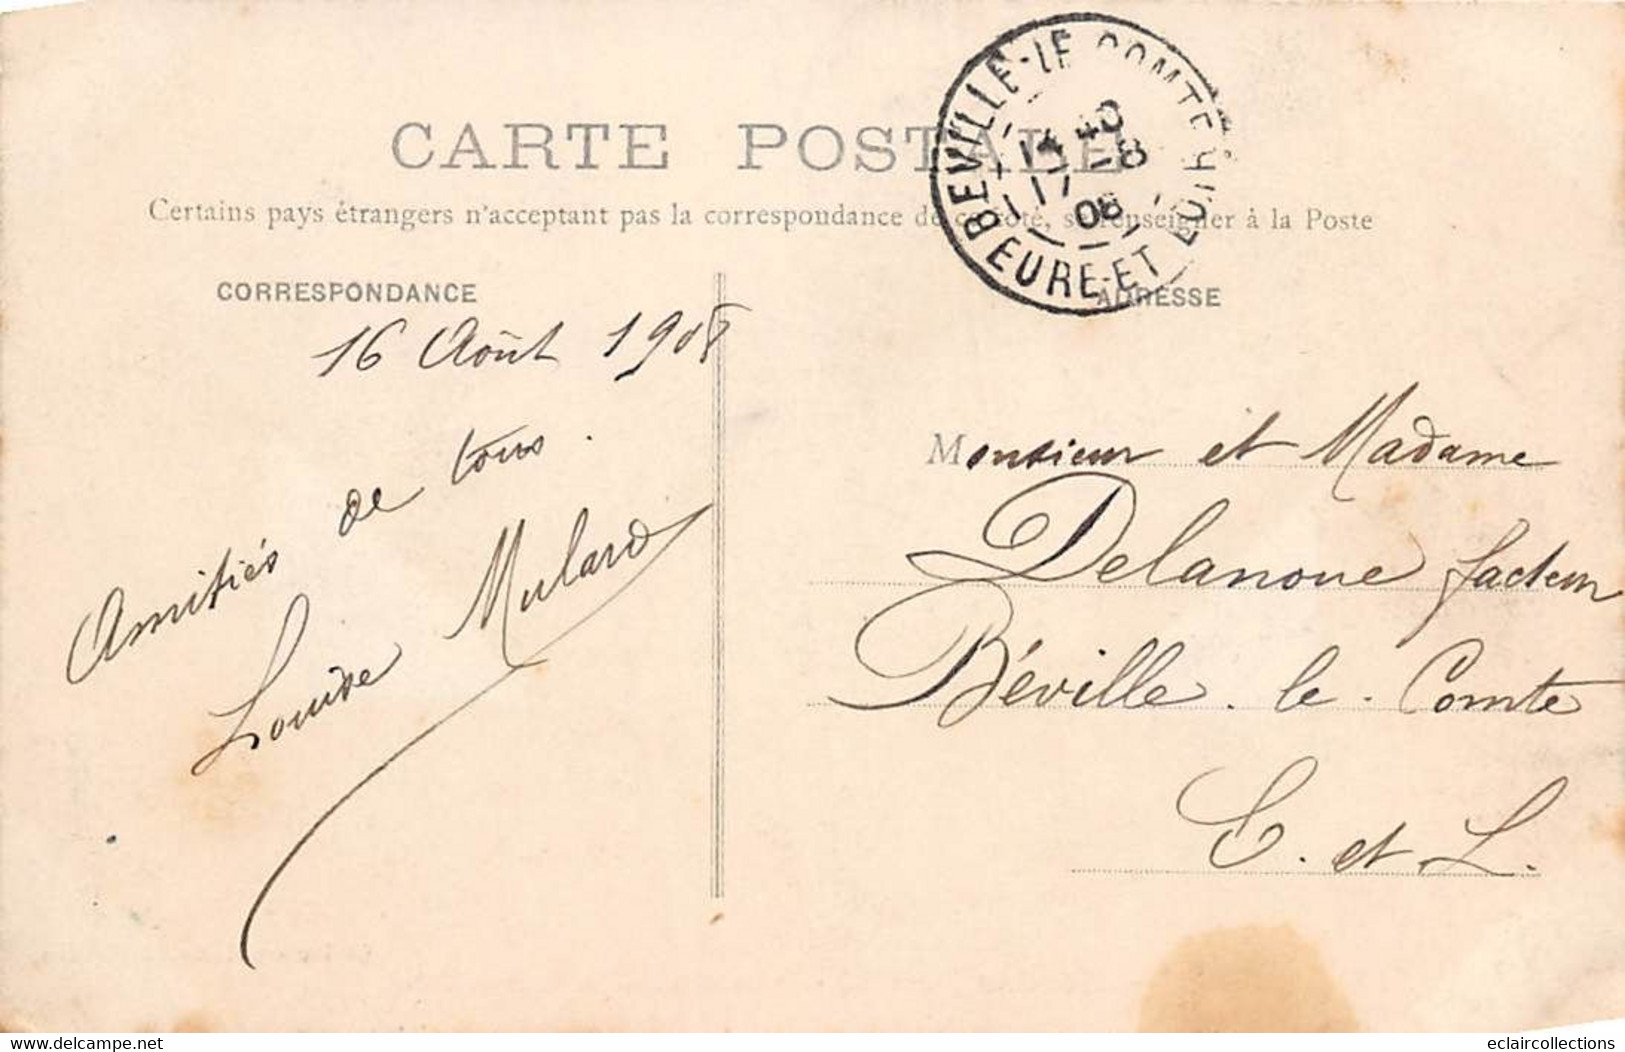 CARTE POSTALE
Certains pays étrangers n'acceptent pas la correspondance de ce côté, se renseigner à la Poste
CORRESPONDANCE
ADRESSE
BEVILLE-LE COMTE
14 40
17 - 8
08
EURE-ET LOIR
16 Août 1908
Amitiés de tous.
Louise Mulard
Monsieur et Madame
Delanoue facteur
Béville-le-Comte
E. et L.
delcampe.net
eclaircollections